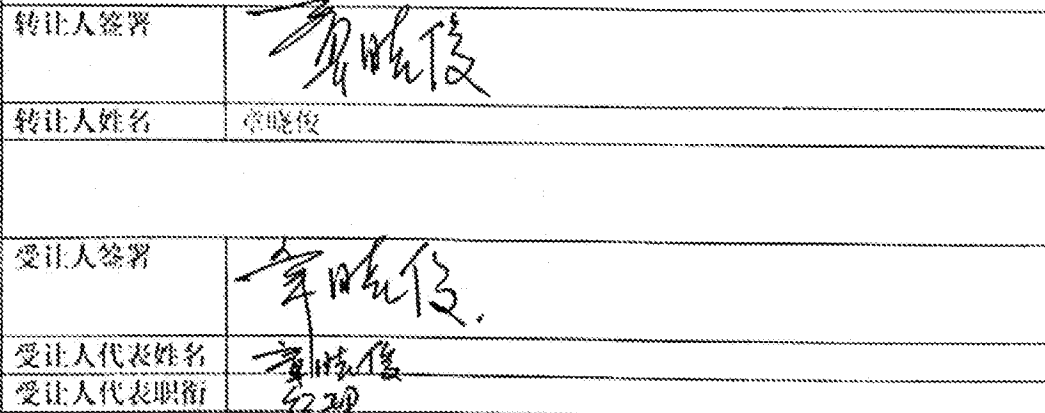 转让人签署 章晓俊
转让人姓名 章晓俊
受让人签署 章晓俊.
受让人代表姓名 章晓俊
受让人代表职衔 经理